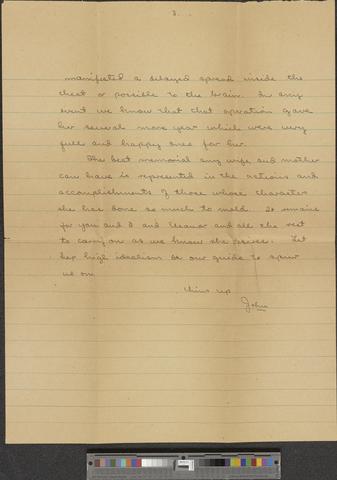 3.
manifested a delayed spread inside the
chest or possible to the brain. In any
event we know that that operation gave
her several more year which were very
full and happy ones for her.
The best memorial any wife and mother
can have is represented in the actions and
accomplishments of those whose character
she has done so much to mold. It remains
for you and I and Eleanor and all the rest
to carry on as we know she
Let
her high idealism be our guide to spur
us on
Chins up
John